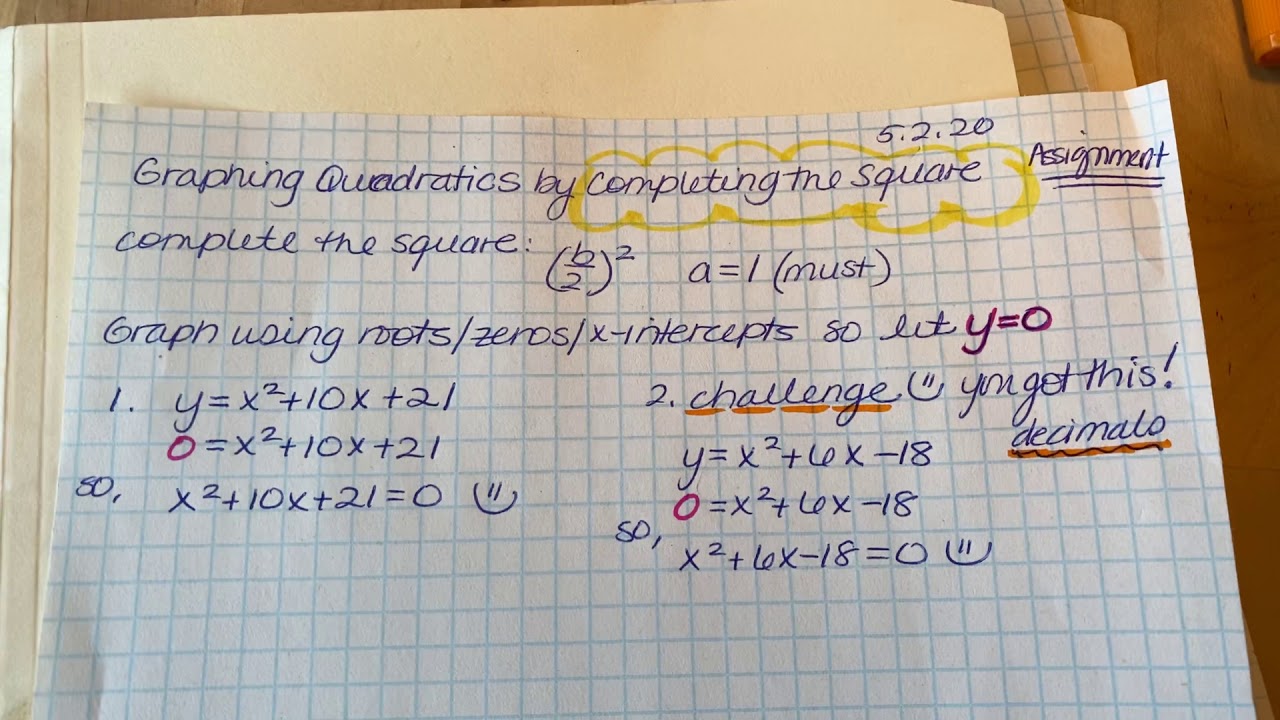 5.2.20
Graphing Quadratics by completing the square
Assignment
complete the square: (b/2)² a=1 (must)
Graph using roots/zeros/x-intercepts so let y=0
1. y=x²+10x+21
0=x²+10x+21
so, x²+10x+21=0
2. challenge you got this!
decimals
y=x²+6x-18
0=x²+6x-18
so,
x²+6x-18=0